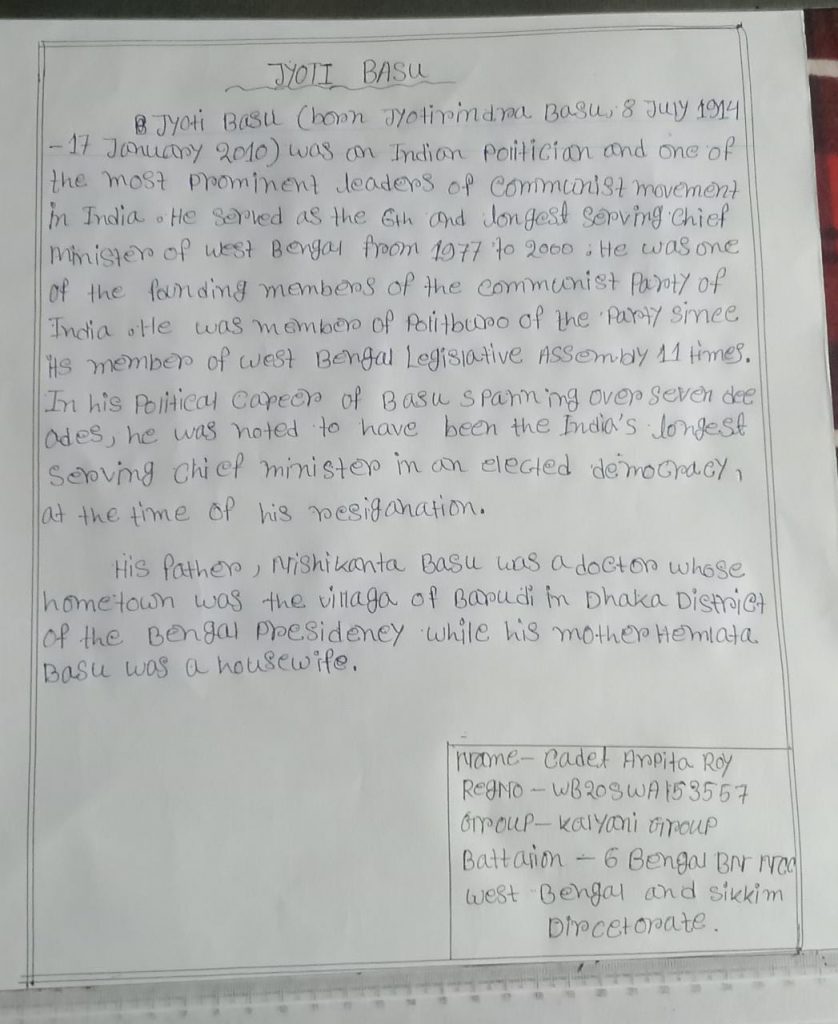 JYOTI BASU
Jyoti Basu (born Jyotirindra Basu, 8 July 1914
- 17 January 2010) was an Indian Politician and one of
the most prominent leaders of Communist movement
in India. He served as the 6th and longest serving Chief
Minister of West Bengal from 1977 to 2000. He was one
of the founding members of the Communist Party of
India. He was member of Politburo of the Party since
its member of West Bengal Legislative Assembly 11 times.
In his Political Career of Basu spanning over seven dec
ades, he was noted to have been the India's longest
serving Chief minister in an elected democracy,
at the time of his resiganation.
His father, Nishikanta Basu was a doctor whose
hometown was the villaga of Barudi in Dhaka District
of the Bengal Presidency while his mother Hemlata
Basu was a housewife.
Name- Cadet Arpita Roy
RegNo - WB20SWA153557
Group- Kalyani Group
Battalion - 6 Bengal BN NCC
West Bengal and Sikkim
Dircetorate.